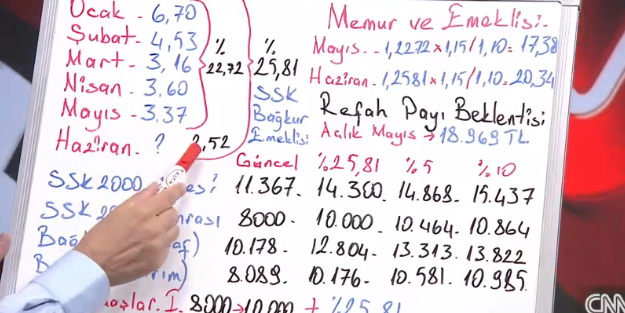 Ocak - 6,70
Şubat - 4,53
Mart - 3,16
Nisan - 3,60
Mayıs - 3,37
Haziran. ? 2,52
%
22,72
%
25,81
SSK
Bağkur
Emeklisi
Memur ve Emeklisi.
Mayıs. - 1,2272x1,15/1,10= 17,38
Haziran. 1,2581x1,15/1,10=20,34
Refah Payı Beklentisi
Açlık Mayıs → 18.969 TL.
Güncel %25,81 %5 %10
SSK 2000 11.367. 14.300. 14.868. 15.437
SSK 8000- 10.000 - 10.464. 10.864
10.178- 12.804- 13.313. 13.822
8.089. 10.176- 10.581. 10.985
8000→10.000 + %25,81
CNN